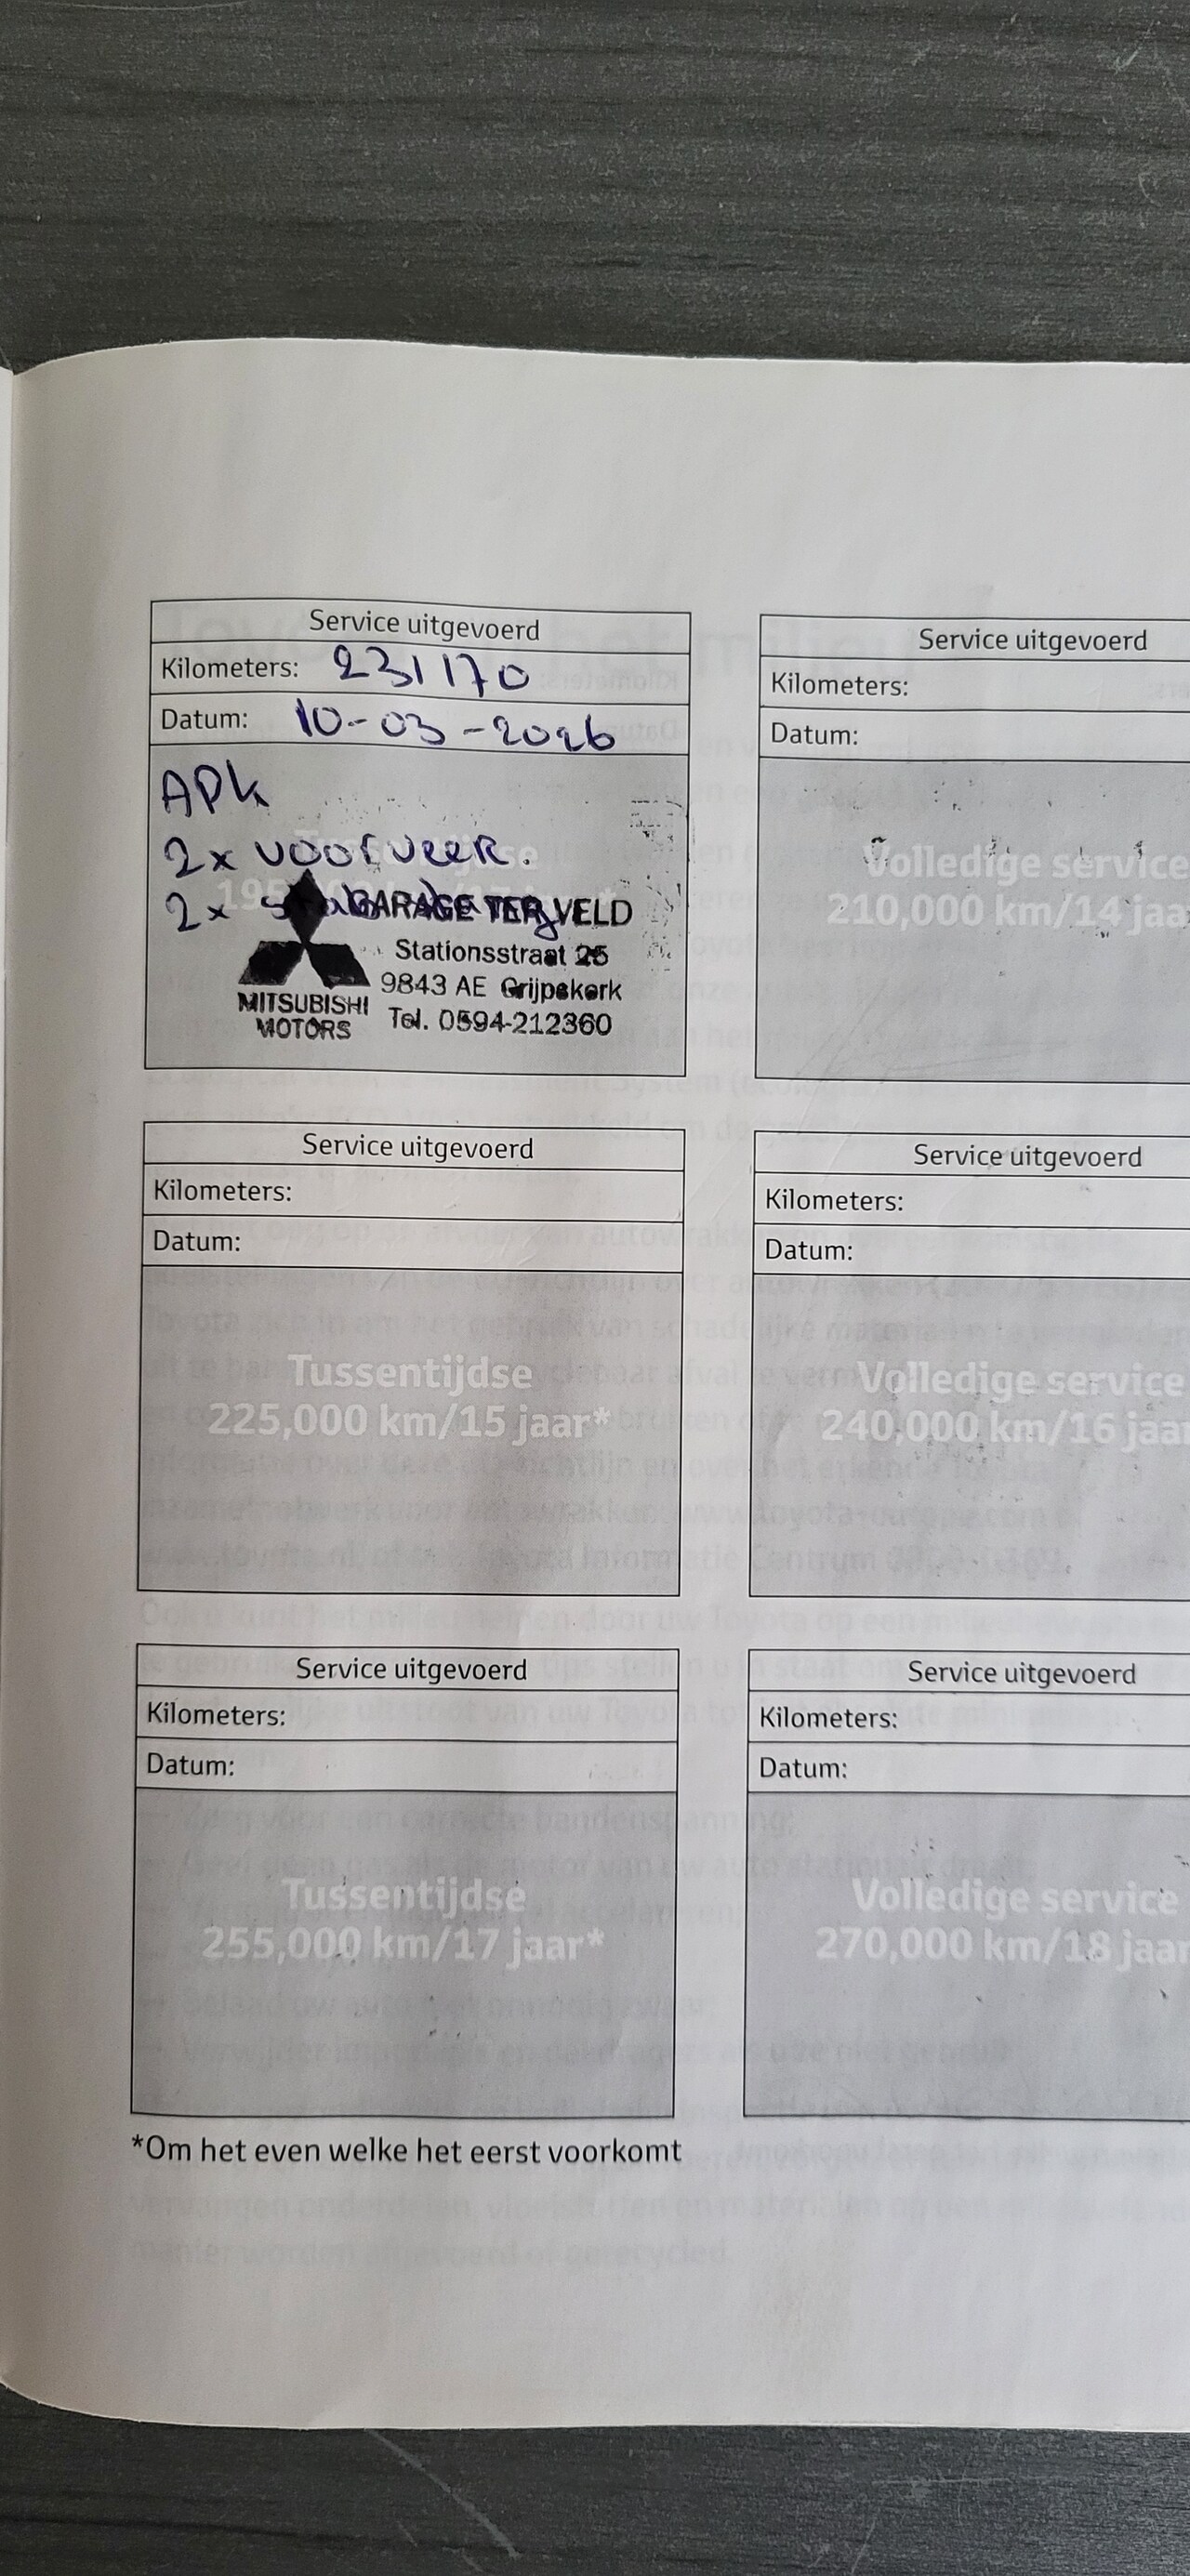 Service uitgevoerd
Kilometers: 231170
Datum: 10-03-2026
APK
2x voorveer.
2x
GARAGE TER VELD
Stationsstraat 25
9843 AE Grijpskerk
Tel. 0594-212360
MITSUBISHI
MOTORS
Service uitgevoerd
Kilometers:
Datum:
Volledige service
210,000 km/14 jaar
Service uitgevoerd
Kilometers:
Datum:
Tussentijdse
225,000 km/15 jaar*
Service uitgevoerd
Kilometers:
Datum:
Volledige service
240,000 km/16 jaar
Service uitgevoerd
Kilometers:
Datum:
Tussentijdse
255,000 km/17 jaar*
Service uitgevoerd
Kilometers:
Datum:
Volledige service
270,000 km/18 jaar
*Om het even welke het eerst voorkomt